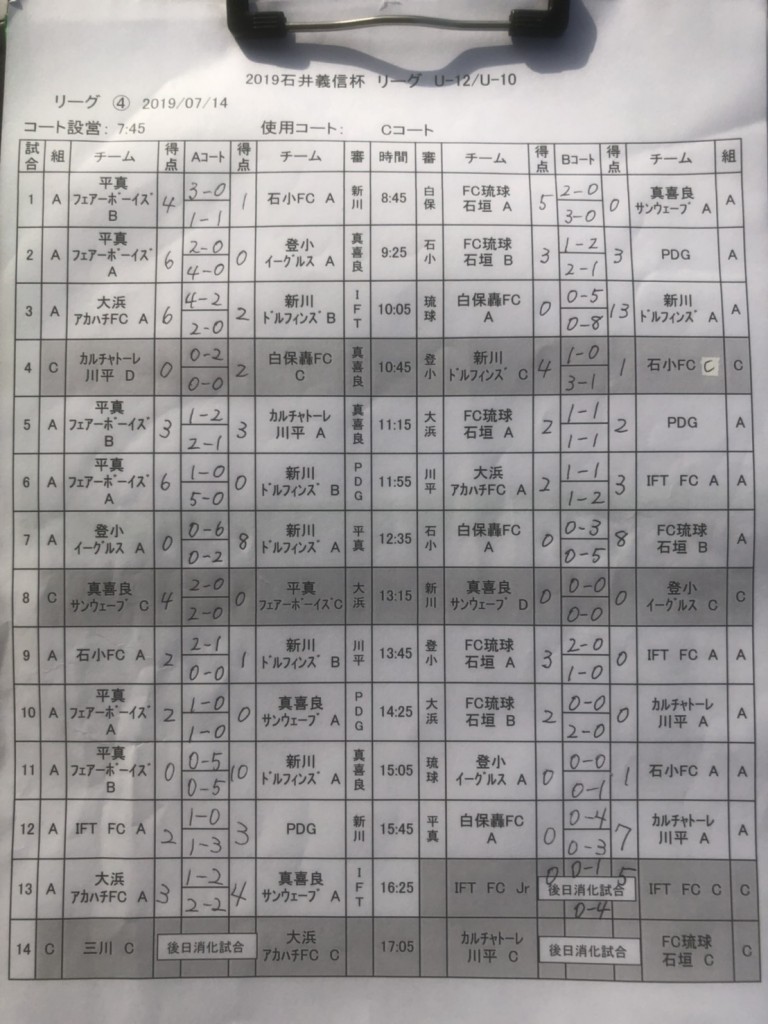 2019石井義信杯 リーグ U-12/U-10
リーグ ④ 2019/07/14
コート設営: 7:45 使用コート: Cコート
試合 組 チーム 得点 Aコート 得点 チーム 審 時間 審 チーム 得点 Bコート 得点 チーム 組
1 A 平真フェアーボーイズ B 4 3-0 1-1 1 石小FC A 新川 8:45 白保 FC琉球石垣 A 5 2-0 3-0 0 真喜良サンウェーブ A A
2 A 平真フェアーボーイズ A 6 2-0 4-0 0 登小イーグルス A 真喜良 9:25 石小 FC琉球石垣 B 3 1-2 2-1 3 PDG A
3 A 大浜アカハチFC A 6 4-2 2-0 2 新川ドルフィンズ B IFT 10:05 琉球 白保轟FC A 0 0-5 0-8 13 新川ドルフィンズ A A
4 C カルチャトーレ川平 D 0 0-2 0-0 2 白保轟FC C 真喜良 10:45 登小 新川ドルフィンズ C 4 1-0 3-1 1 石小FC C C
5 A 平真フェアーボーイズ B 3 1-2 2-1 3 カルチャトーレ川平 A 真喜良 11:15 大浜 FC琉球石垣 A 2 1-1 1-1 2 PDG A
6 A 平真フェアーボーイズ A 6 1-0 5-0 0 新川ドルフィンズ B PDG 11:55 川平 大浜アカハチFC A 2 1-1 1-2 3 IFT FC A A
7 A 登小イーグルス A 0 0-6 0-2 8 新川ドルフィンズ A 平真 12:35 石小 白保轟FC A 0 0-3 0-5 8 FC琉球石垣 B A
8 C 真喜良サンウェーブ C 4 2-0 2-0 0 平真フェアーボーイズC 大浜 13:15 新川 真喜良サンウェーブ D 0 0-0 0-0 0 登小イーグルス C C
9 A 石小FC A 2 2-1 0-0 1 新川ドルフィンズ B 川平 13:45 登小 FC琉球石垣 A 3 2-0 1-0 0 IFT FC A A
10 A 平真フェアーボーイズ A 2 1-0 1-0 0 真喜良サンウェーブ A PDG 14:25 大浜 FC琉球石垣 B 2 0-0 2-0 0 カルチャトーレ川平 A A
11 A 平真フェアーボーイズ B 0 0-5 0-5 10 新川ドルフィンズ A 真喜良 15:05 琉球 登小イーグルス A 0 0-0 0-1 1 石小FC A A
12 A IFT FC A 2 1-0 1-3 3 PDG 新川 15:45 平真 白保轟FC A 0 0-4 0-3 7 カルチャトーレ川平 A A
13 A 大浜アカハチFC A 3 1-2 2-2 4 真喜良サンウェーブ A IFT 16:25 IFT FC Jr 0 0-1 後日消化試合 0-4 5 IFT FC C C
14 C 三川 C 後日消化試合 大浜アカハチFC C 17:05 カルチャトーレ川平 C 後日消化試合 FC琉球石垣 C C